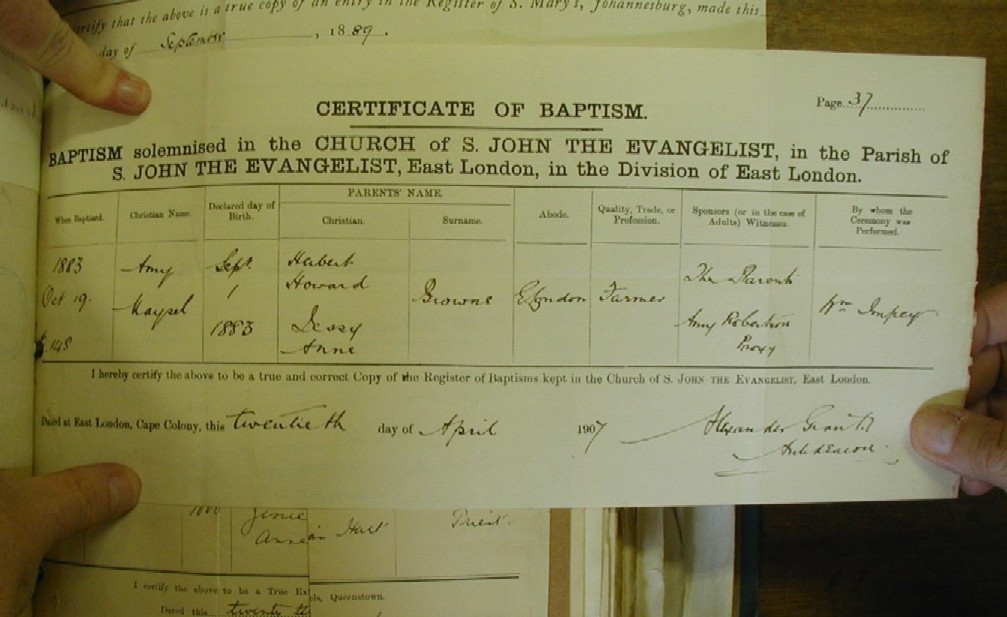 certify that the above is a true copy of an entry in the Register of S. Mary's, Johannesburg, made this
day of September, 1889.
CERTIFICATE OF BAPTISM.
Page 37
BAPTISM solemnised in the CHURCH of S. JOHN THE EVANGELIST, in the Parish of
S. JOHN THE EVANGELIST, East London, in the Division of East London.
When Baptised. Christian Name. Declared day of Birth. PARENTS' NAME. Christian. Surname. Abode. Quality, Trade, or Profession. Sponsors (or in the case of Adults) Witnesses. By whom the Ceremony was Performed.
1883 Amy Sept. Herbert The Parents
Oct 19. 1 Howard Browne E London Farmer Wm Impey
148 1883 Jessy Amy Robertson
Anne Proxy
I hereby certify the above to be a true and correct Copy of the Register of Baptisms kept in the Church of S. JOHN THE EVANGELIST, East London.
Dated at East London, Cape Colony, this twentieth day of April 1907 Alexander Grant
Archdeacon.
Jessie
Anne Hart Priest.
I certify the above to be a True Ex
Queenstown.
Dated this twenty